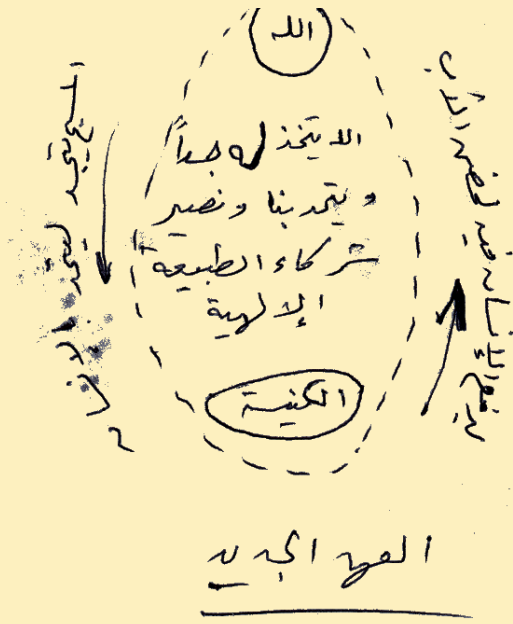 الله
الابن يتخذ له جسداً
ويتحد بنا ونصير
شركاء الطبيعة
الإلهية
الكنيسة
المسيح يتجسد ليتحد بالإنسان
يرفع الإنسان فيه لحضن الآب
العهد الجديد